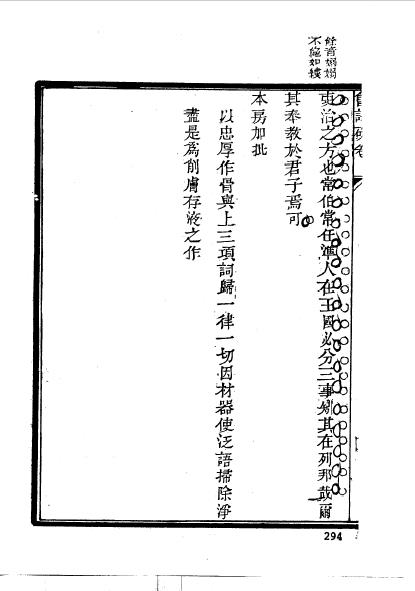 餘音嫋嫋
不絕如縷
會試硃卷
吏治之方也常伯常任準人在王國必分三事矧其在列邦哉爾
其奉教於君子焉可
本房加批
以忠厚作骨與上三項詞歸一律一切因材器使泛語掃除淨
盡是爲削膚存液之作
294